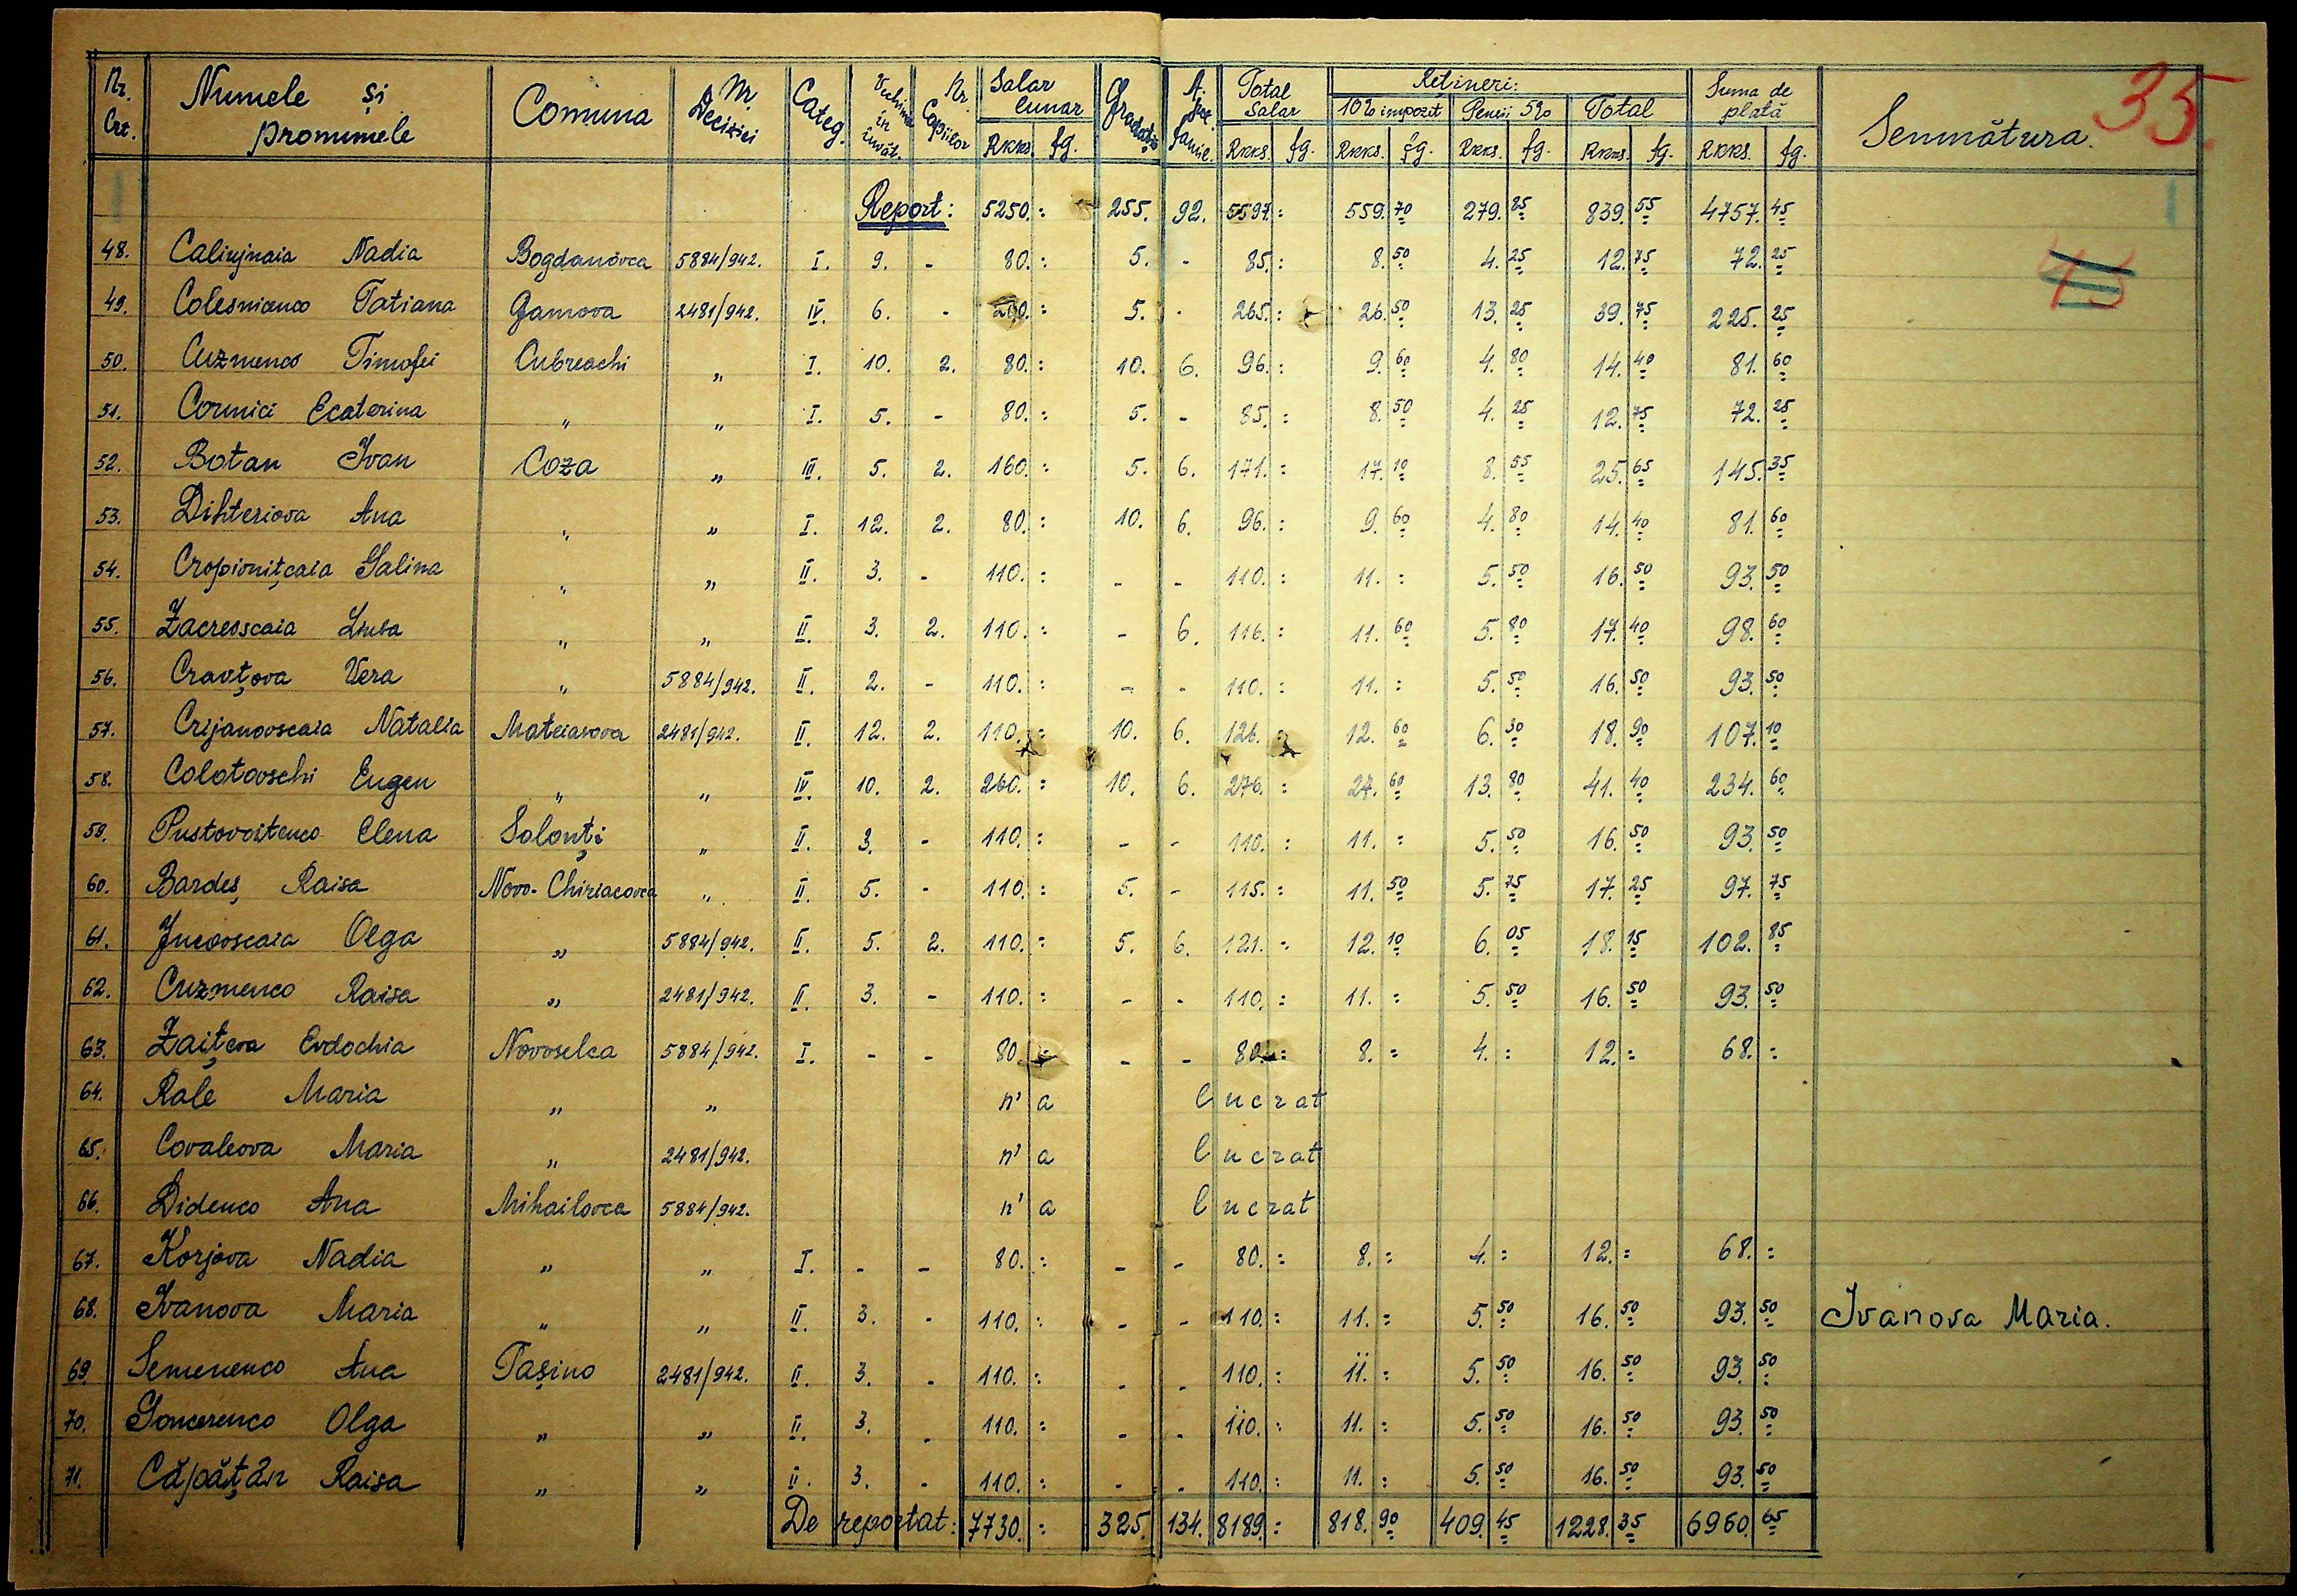 Nr. Crt. Numele și pronumele Comuna Nr. Deciziei Categ. Vechime în învăt. Nr. Copiilor Salar lunar RKKS. fg. Gradație A. familie. Total Salar RKKS. fg. Rețineri: 10% impozit RKKS. fg. Pensii 5% RKKS. fg. Total RKKS. fg. Suma de plată RKKS. fg. Semnătura. 35.
Report: 5250.= 255. 92. 5597.= 559.70 279.85 839.55 4757.45
48. Nadia Bogdanovca 5884/942. I. 9. - 80.= 5. - 85.= 8.50 4.25 12.75 72.25
49. Colesnicenco Tatiana Gamova 2481/942. IV. 6. - 260.= 5. - 265.= 26.50 13.25 39.75 225.25
50. Cuzmenco Timofei Cubreachi „ I. 10. 2. 80.= 10. 6. 96.= 9.60 4.80 14.40 81.60
51. Cornici Ecaterina „ „ I. 5. - 80.= 5. - 85.= 8.50 4.25 12.75 72.25
52. Botan Ivan Coza „ III. 5. 2. 160.= 5. 6. 171.= 17.10 8.55 25.65 145.35
53. Dihteriova Ana „ „ I. 12. 2. 80.= 10. 6. 96.= 9.60 4.80 14.40 81.60
54. Cropivnițcaia Galina „ „ II. 3. - 110.= - - 110.= 11.= 5.50 16.50 93.50
55. Zacrevscaia Liuba „ „ II. 3. 2. 110.= - 6. 116.= 11.60 5.80 17.40 98.60
56. Cravțova Vera „ 5884/942. II. 2. - 110.= - - 110.= 11.= 5.50 16.50 93.50
57. Crijanovscaia Natalia Mateiasova 2481/942. II. 12. 2. 110.= 10. 6. 126.= 12.60 6.30 18.90 107.10
58. Colotovschi Eugen „ „ IV. 10. 2. 260.= 10. 6. 276.= 27.60 13.80 41.40 234.60
59. Pustovoitenco Elena Solonți „ II. 3. - 110.= - - 110.= 11.= 5.50 16.50 93.50
60. Bardeș Raisa Novo-Chiriacovca „ II. 5. - 110.= 5. - 115.= 11.50 5.75 17.25 97.75
61. Jucovscaia Olga „ 5884/942. II. 5. 2. 110.= 5. 6. 121.= 12.10 6.05 18.15 102.85
62. Cuzmenco Raisa „ 2481/942. II 3. - 110.= - - 110.= 11.= 5.50 16.50 93.50
63. Zaițeva Evdochia Novoselca 5884/942. I. - - 80.= - - 80.= 8.= 4.= 12.= 68.=
64. Rale Maria „ „ n'a lucrat
65. Covaleova Maria „ 2481/942. n'a lucrat
66. Didenco Ana Mihailovca 5884/942. n'a lucrat
67. Korjova Nadia „ „ I. - - 80.= - - 80.= 8.= 4.= 12.= 68.=
68. Ivanova Maria „ „ II. 3. - 110.= - - 110.= 11.= 5.50 16.50 93.50 Ivanova Maria.
69. Semenenco Ana Tașino 2481/942. II. 3. - 110.= - - 110.= 11.= 5.50 16.50 93.50
70. Goncerenco Olga „ „ II. 3. - 110.= - - 110.= 11.= 5.50 16.50 93.50
71. Căpățân Raisa „ „ II. 3. - 110.= - - 110.= 11.= 5.50 16.50 93.50
De reportat: 7730.= 325. 134. 8189.= 818.90 409.45 1228.35 6960.65